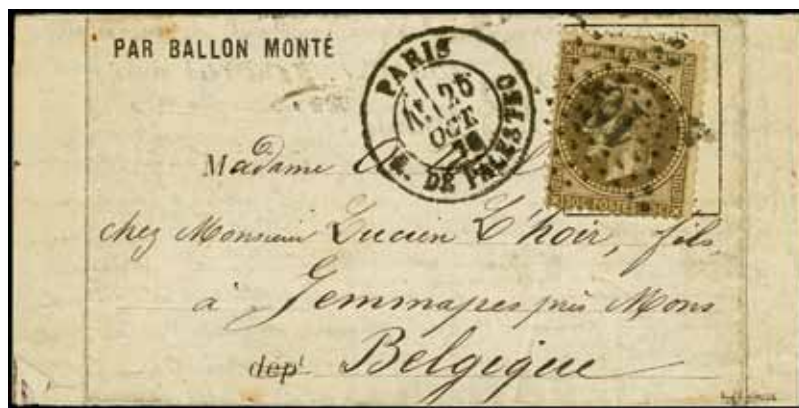 PAR BALLON MONTÉ
PARIS
25
OCT
R. DE PALESTRO
Madame
chez Monsieur Lucien L'hoir, fils,
à Jemmapes près Mons
depᵗ Belgique